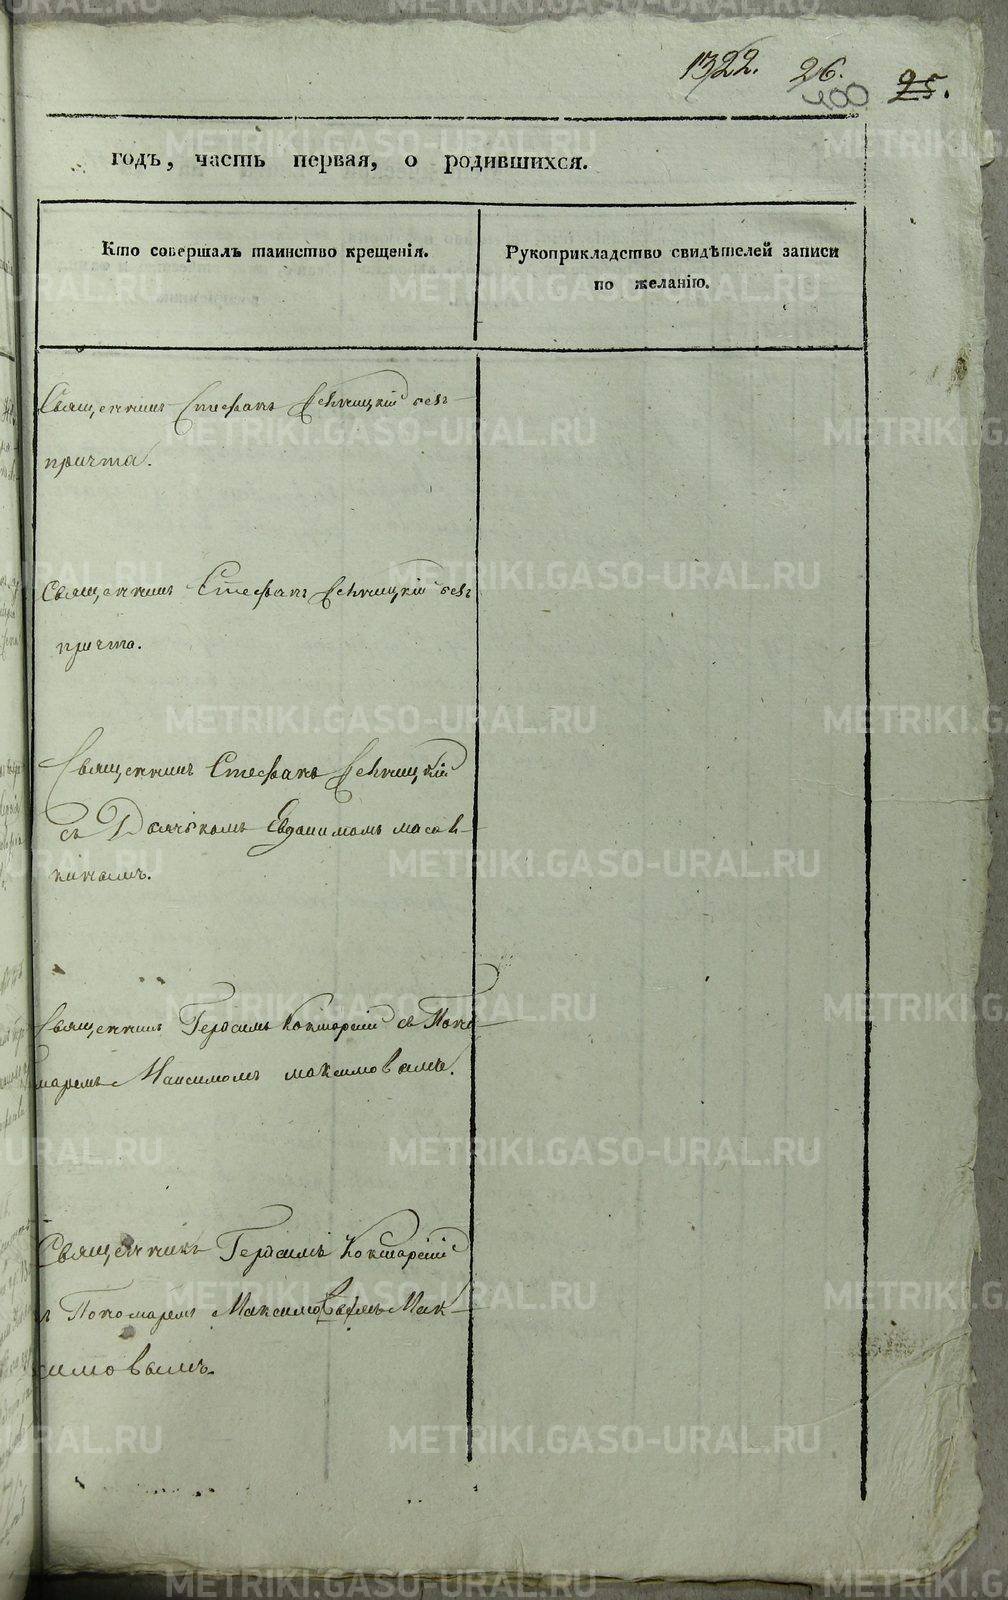 1322. 26. 25.
400
годъ, часть первая, о родившихся.
Кто совершалъ таинство крещенія.
Рукоприкладство свидѣтелей записи
по желанію.
Священникъ Стефанъ безъ
причта.
Священникъ Стефанъ безъ
причта.
Священникъ Стефанъ
съ Дьячкомъ Евдокимомъ
Священникъ Герасимъ Кокшарскій съ Поно-
маремъ Максимомъ Максимовымъ.
Священникъ Герасимъ Кокшарскій
съ Пономаремъ Мак-
симовымъ.
METRIKI.GASO-URAL.RU